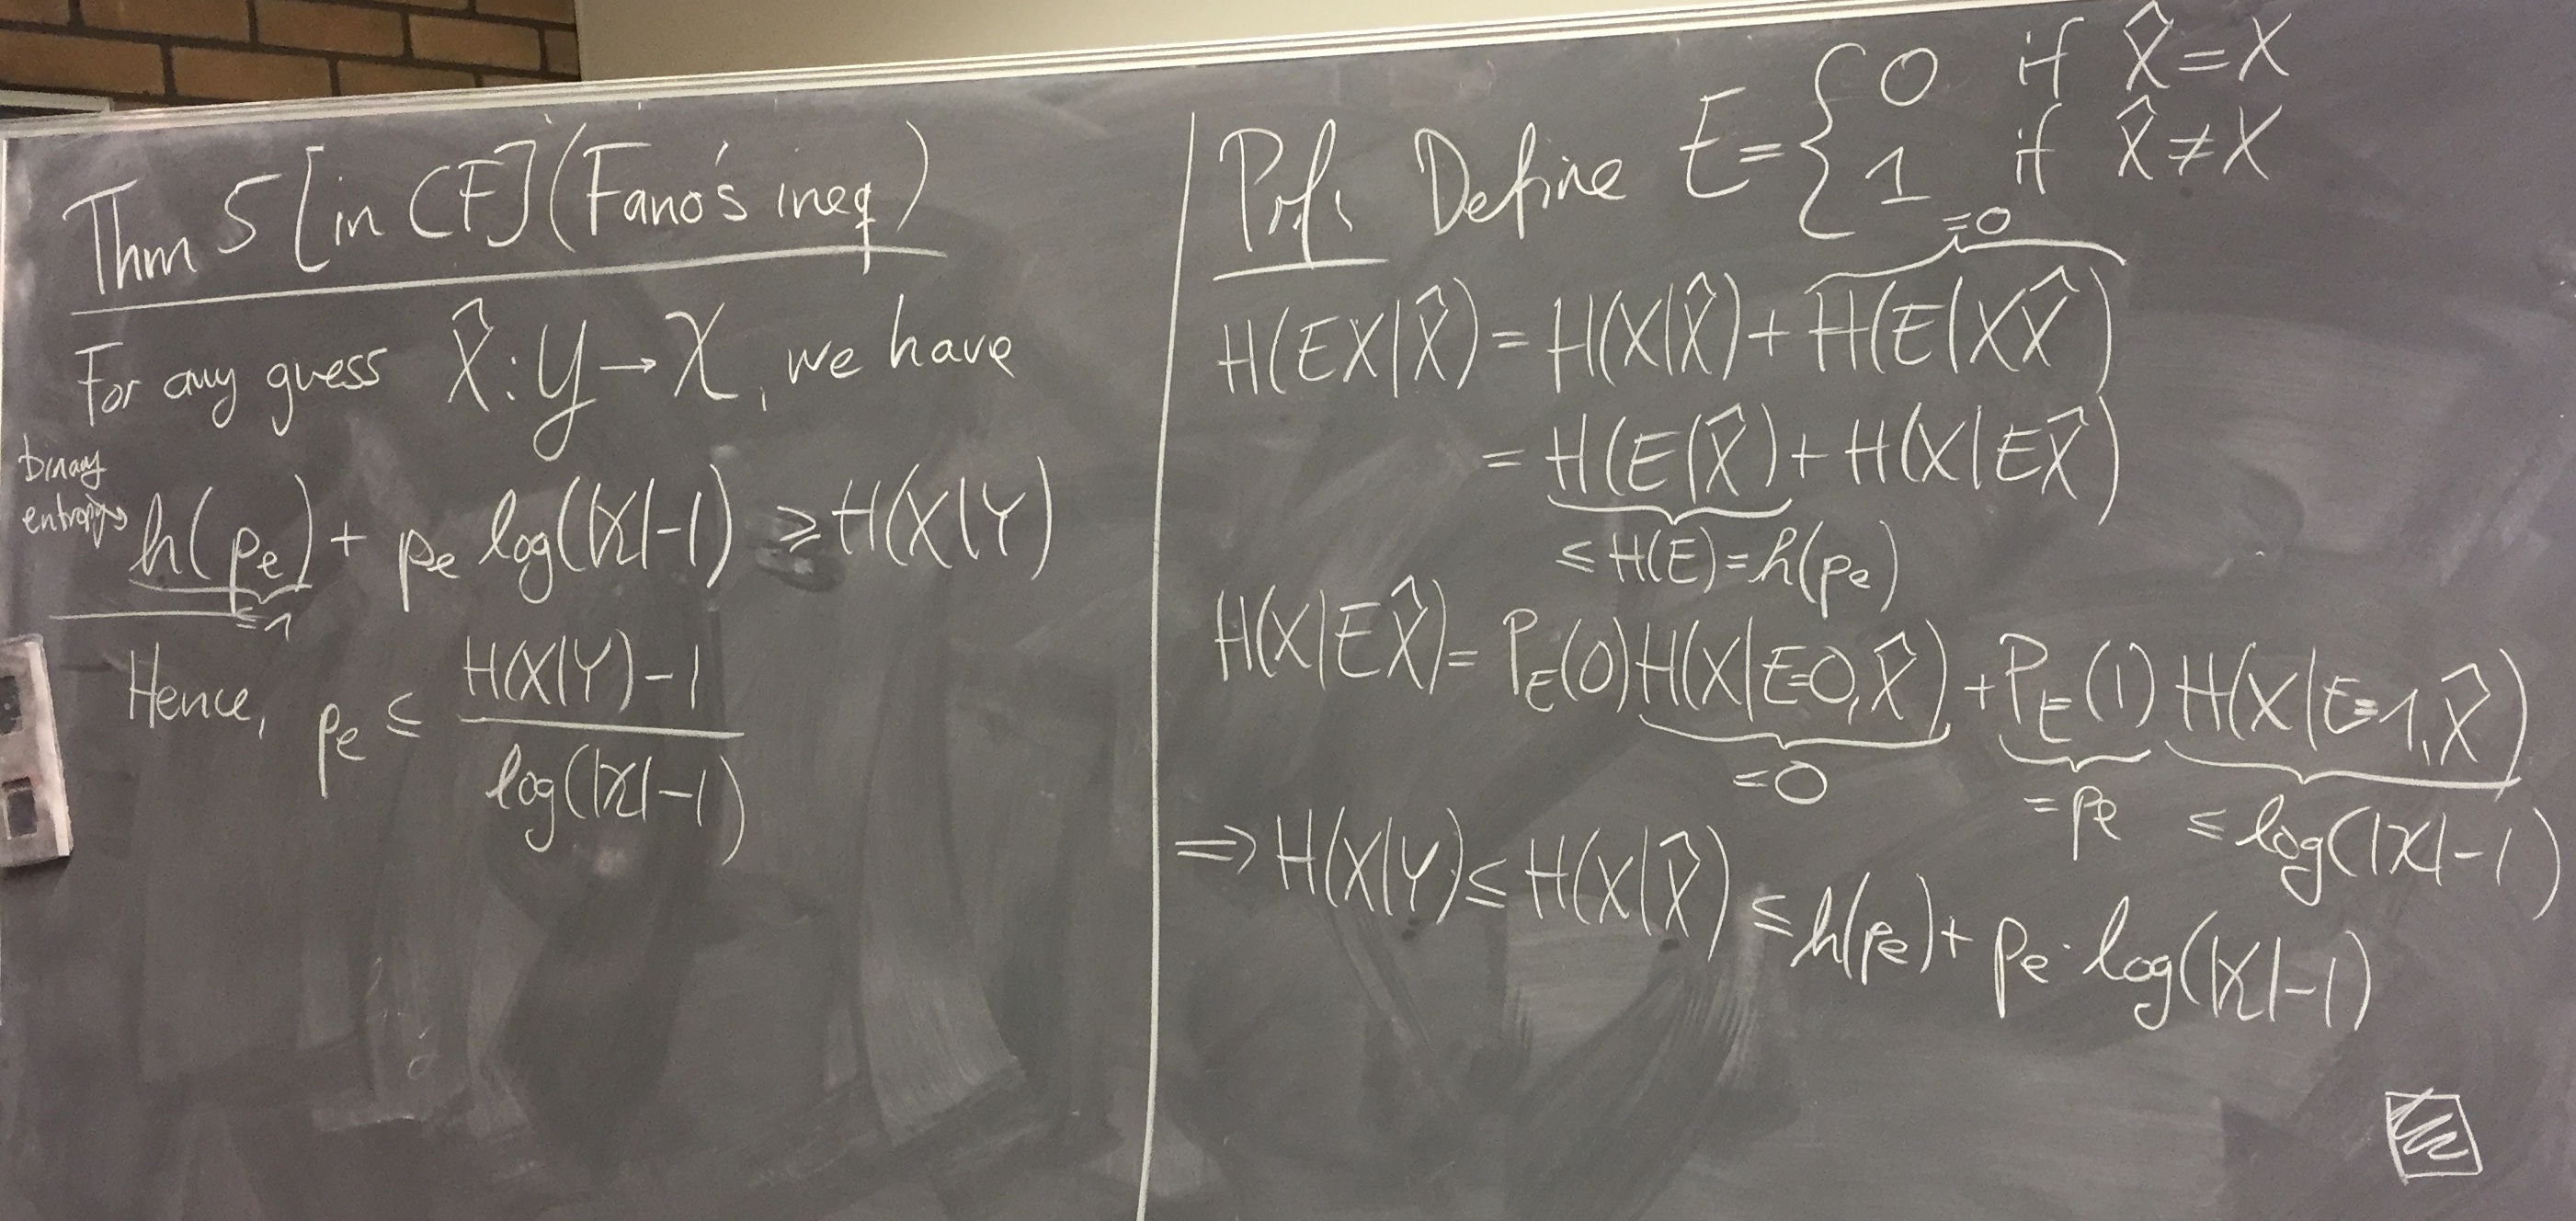 Thm 5 [in CF] (Fano's ineq)
For any guess X̂ : 𝒴 → 𝒳, we have
binary
entropy
h(pₑ) + pₑ log(|𝒳|-1) ≥ H(X|Y)
≤1
Hence, pₑ ≤ (H(X|Y) - 1) / log(|𝒳|-1)
Prf. Define E = { 0 if X̂ = X
1 if X̂ ≠ X
=0
H(EX|X̂) = H(X|X̂) + H(E|XX̂)
= H(E|X̂) + H(X|EX̂)
≤ H(E) = h(pₑ)
H(X|EX̂) = P_E(0) H(X|E=0,X̂) + P_E(1) H(X|E=1,X̂)
=0 = pₑ ≤ log(|𝒳|-1)
⇒ H(X|Y) ≤ H(X|X̂) ≤ h(pₑ) + pₑ · log(|𝒳|-1)